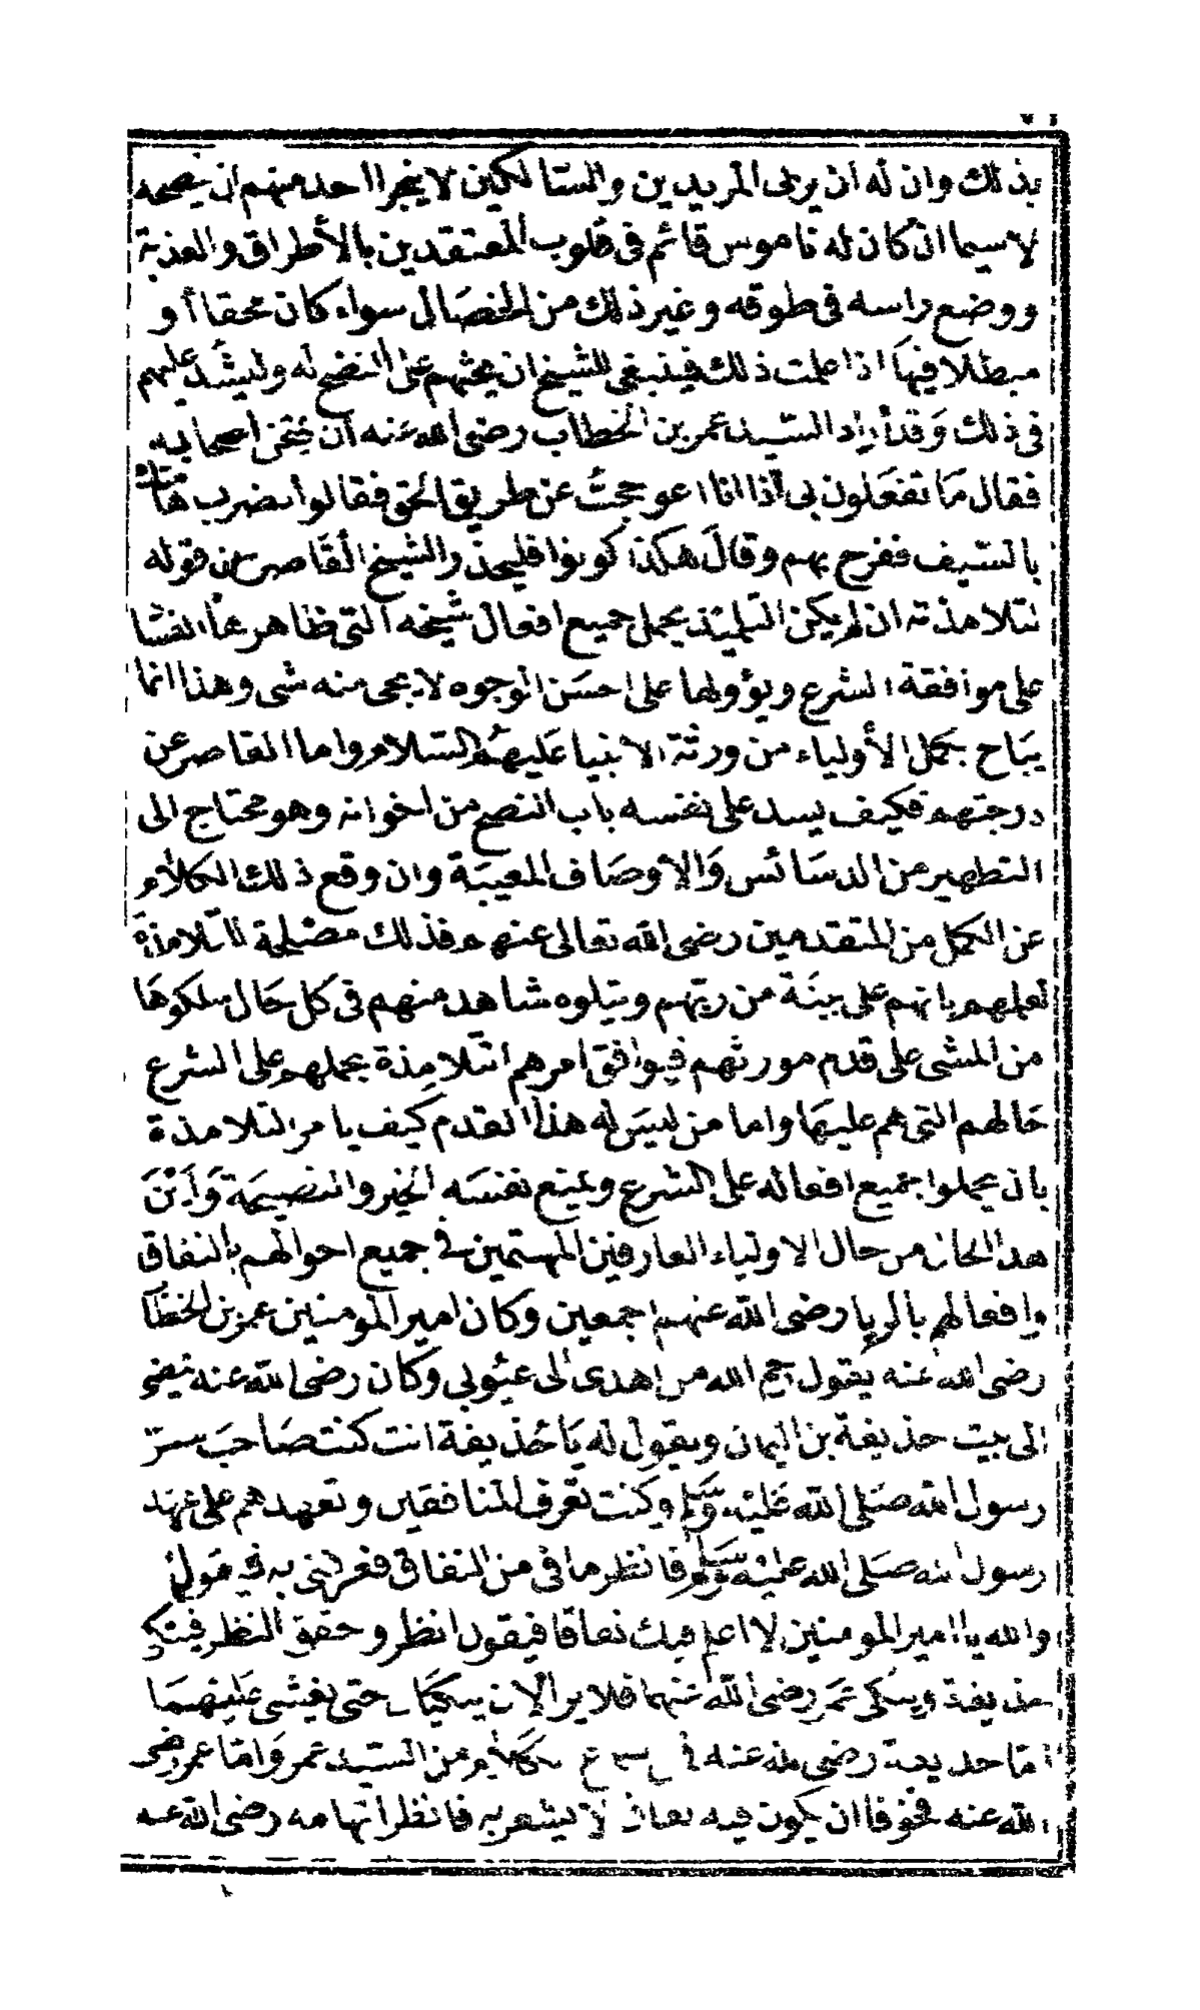 بذلك وان له ان يربى المريدين والسالكين لا يتجرا احد منهم ان ينصحه
لاسيما ان كان له ناموس قائم فى قلوب المعتقدين بالأطراق والعذبة
ووضع راسه فى طوقه وغير ذلك من الخصال سواء كان محقا أو
مبطلا فيها اذا علمت ذلك فينبغى للشيخ ان يحثهم على النصح له وليشدد عليهم
فى ذلك وقد أراد السيد عمر بن الخطاب رضى الله عنه ان يمتحن أصحابه
فقال ما تفعلون بى اذا انا اعوججت عن طريق الحق فقالوا نضرب هامتك
بالسيف ففرح بهم وقال هكذا كونوا فليحذر الشيخ القاصر من قوله
لتلامذته ان لم يكن التلميذ يحمل جميع افعال شيخه التى ظاهرها الفشا
على موافقة الشرع ويؤولها على احسن الوجوه لا يجى منه شى وهذا انما
يباح بكمل الأولياء من ورثة الانبيا عليهم السلام واما القاصر عن
درجتهم فكيف يسد على نفسه باب النصح من اخوانه وهو محتاج الى
التطهير من الدسائس والاوصاف المعيبة وان وقع ذلك الكلام
عن الكمل من المتقدمين رضى الله تعالى عنهم فذلك مصلحة للتلامذة
لعلمهم بانهم على بينة من ربهم ويتلوه شاهد منهم فى كل حال سلكوها
من المشى على قدم مورثهم فيوافق امرهم التلامذة بحملهم على الشرع
حالهم التى هم عليها واما من ليس له هذا القدم كيف يامر التلامذة
بان يحملوا جميع افعاله على الشرع ويمنع نفسه الخير والنصيحة واين
هذا الحال من حال الاولياء العارفين المهتمين فى جميع احوالهم بالنفاق
وافعالهم بالريا رضى الله عنهم اجمعين وكان امير المومنين عمر بن الخطا
رضى الله عنه يقول رحم الله من اهدى الى عيوبى وكان رضى الله عنه يمضى
الى بيت حذيفة بن اليمان ويقول له يا حذيفة انت كنت صاحب سر
رسول الله صلى الله عليه وسلم وكنت تعرف المنافقين وتعهدهم على عهد
رسول الله صلى الله عليه وسلم فانظر ما فى من النفاق فعرفنى به فيقول
والله يا امير المومنين لا اعلم فيك نفاقا فيقول انظر وحقق النظر فيبكى
حذيفة ويبكى عمر رضى الله عنهما فلا يزالان يبكيان حتى يغشى عليهما
اما حذيفة رضى الله عنه كلام من السيد عمر واما عمر رضى
الله عنه فخوفا ان يكون فيه نفاق لا يشعر به فانظر اتهامه رضى الله عنه